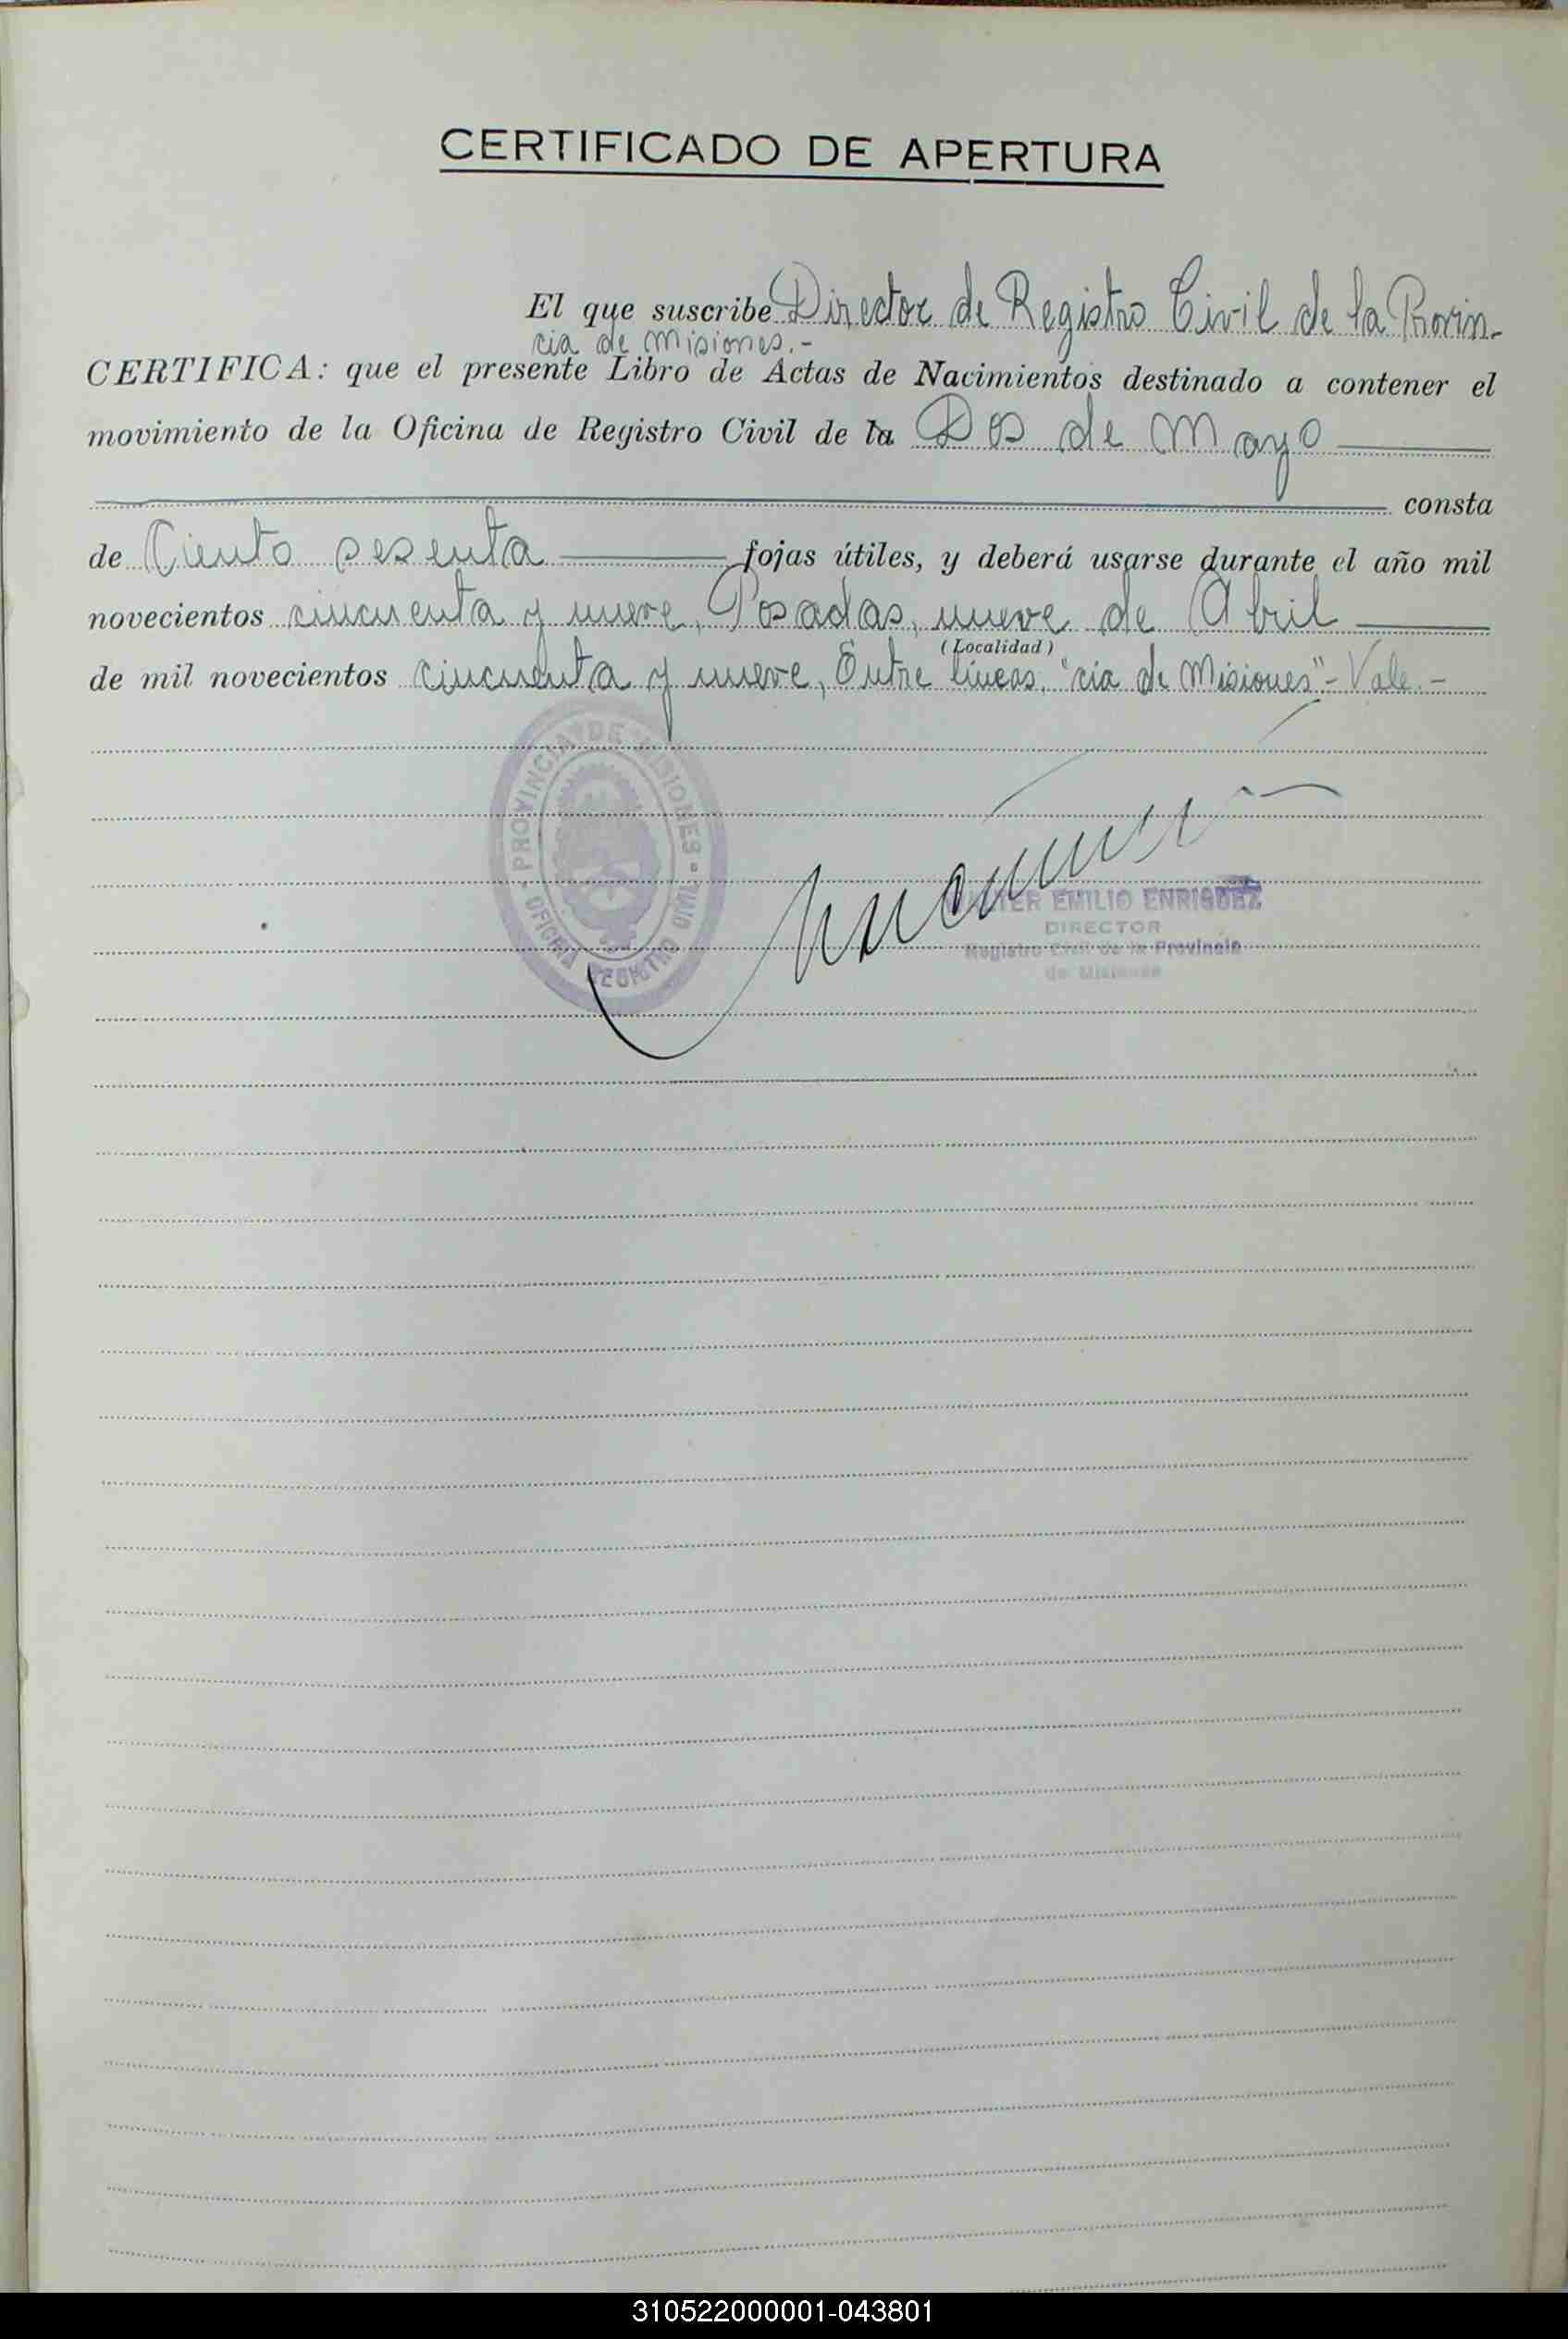 CERTIFICADO DE APERTURA
El que suscribe Director de Registro Civil de la Provin-
cia de Misiones.-
CERTIFICA: que el presente Libro de Actas de Nacimientos destinado a contener el
movimiento de la Oficina de Registro Civil de la Dos de Mayo
consta
de Ciento sesenta fojas útiles, y deberá usarse durante el año mil
novecientos cincuenta y nueve, Posadas, nueve de Abril
(Localidad)
de mil novecientos cincuenta y nueve, Entre líneas, "cia de Misiones"- Vale.-
PROVINCIA DE MISIONES - OFICINA REGISTRO CIVIL
EMILIO ENRIQUEZ
DIRECTOR
Registro Civil de la Provincia
de Misiones
310522000001-043801